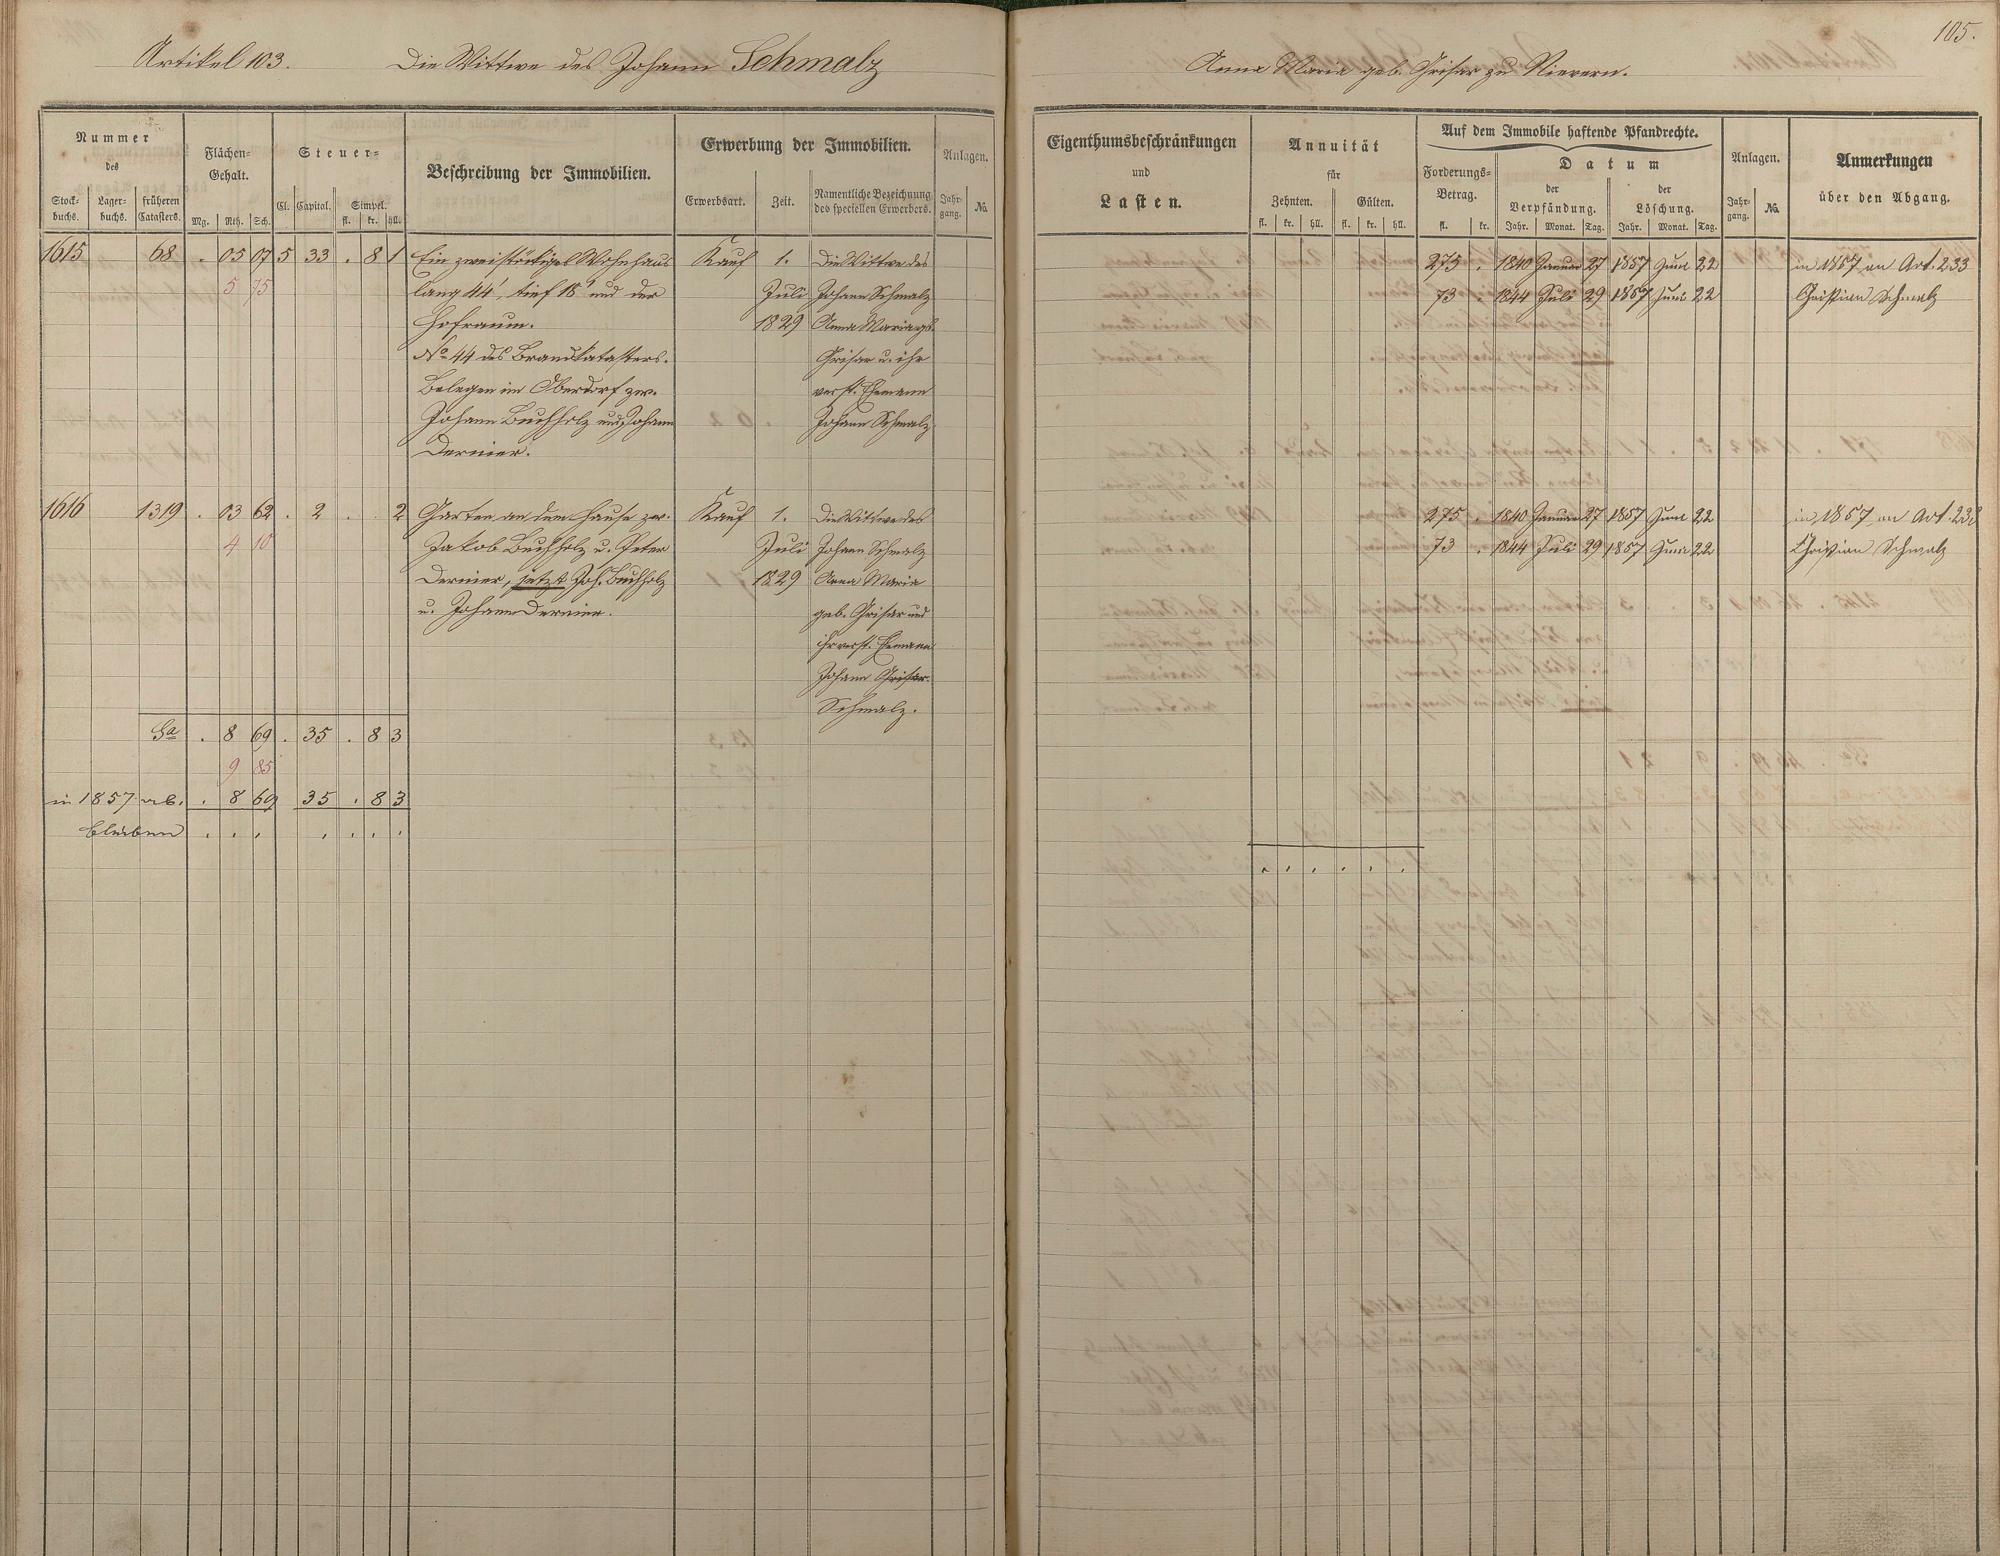 105.
Artikel 103. Die Wittwe des Johann Schmalz Anna Maria geb. Griesar zu Nievern.
Nummer des
Stock-buchs. Lager-buchs. früheren Catasters.
Flächen-Gehalt.
Mg. Rth. Sch.
Steuer-
Cl. Capital. Simpel.
fl. kr. hll.
Beschreibung der Immobilien.
Erwerbung der Immobilien.
Erwerbsart. Zeit. Namentliche Bezeichnung des speciellen Erwerbers.
Anlagen.
Jahr-gang. No.
Eigenthumsbeschränkungen
und
Lasten.
Annuität
für
Zehnten. Gülten.
fl. kr. hll. fl. kr. hll.
Auf dem Immobile haftende Pfandrechte.
Forderungs-Betrag.
fl. kr.
Datum
der Verpfändung. der Löschung.
Jahr. Monat. Tag. Jahr. Monat. Tag.
Anlagen.
Jahr-gang. No.
Anmerkungen
über den Abgang.
1615 68 . 05 07 5 33 . 8 1 Ein zweistöckiges Wohnhaus Kauf 1. Die Wittwe des 275 . 1840 Januar 27 1857 Juni 22 in 1857 an Art. 233
5 75 lang 44', tief 18' und der Juli Johann Schmalz 73 . 1844 Juli 29 1857 Juni 22 Christian Schmalz
Hofraum. 1829 Anna Maria geb.
No 44 des Brandkatasters. Grisar u. ihr
Belegen im Oberdorf zw. verst. Ehemann
Johann Buchholz und Johann Johann Schmalz
Dernier.
1616 1319 . 03 62 . 2 . 2 Garten an dem Hause zw. Kauf 1. Die Wittwe des 275 . 1840 Januar 27 1857 Juni 22 in 1857 an Art. 233
4 10 Jakob Buchholz u. Peter Juli Johann Schmalz 73 . 1844 Juli 29 1857 Juni 22 Christian Schmalz
Dernier, jetzt Joh. Buchholz 1829 Anna Maria
u. Johann Dernier. geb. Grisar und
ihr verst. Ehemann
Johann Grisar.
Schmalz.
Sa . 8 69 . 35 . 8 3
9 85
in 1857 ab. . 8 69 35 . 8 3
bleiben . . . . . . .
. . . . . .